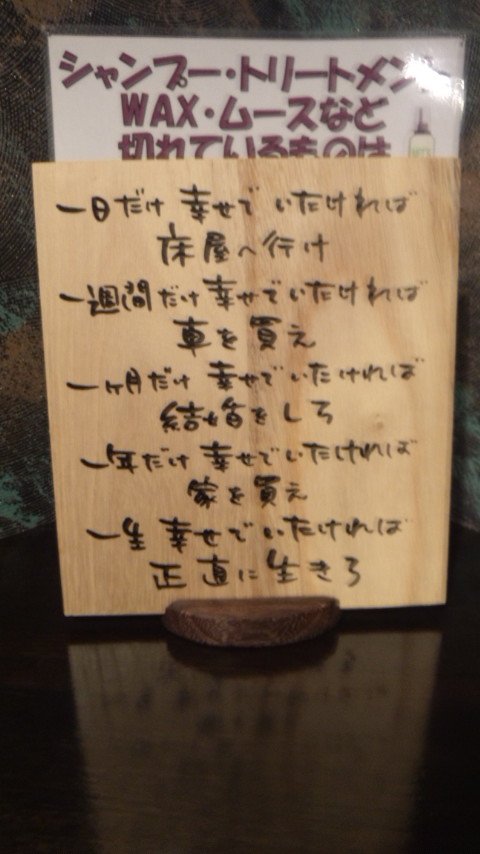 シャンプー・トリートメント
WAX・ムースなど
切れているものは
一日だけ 幸せで いたければ
床屋へ行け
一週間だけ 幸せで いたければ
車を買え
一ヶ月だけ 幸せで いたければ
結婚をしろ
一年だけ 幸せで いたければ
家を買え
一生 幸せで いたければ
正直に生きろ